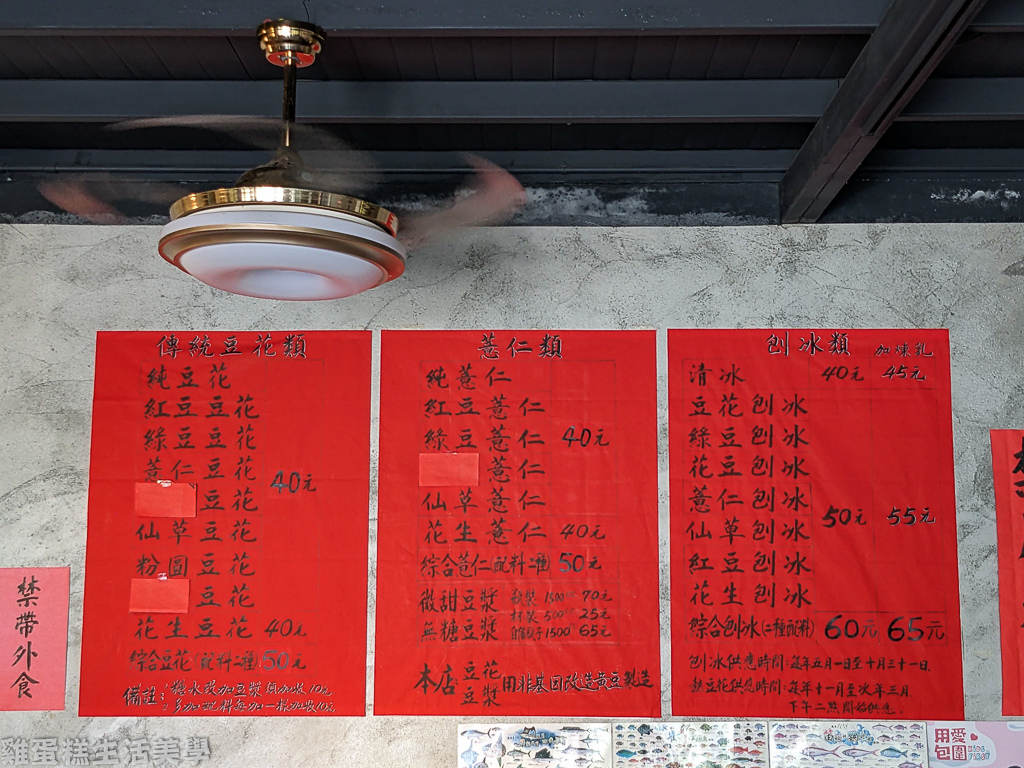 傳統豆花類
純豆花
紅豆豆花
綠豆豆花
薏仁豆花 40元
豆花
仙草豆花
粉圓豆花
豆花
花生豆花 40元
綜合豆花(配料二種)50元
備註:糖水改加豆漿須加收10元
:多加配料每加一樣加收10元
薏仁類
純薏仁
紅豆薏仁
綠豆薏仁 40元
薏仁
仙草薏仁
花生薏仁 40元
綜合薏仁(配料二種)50元
微甜豆漿
無糖豆漿
瓶裝 1500cc 70元
杯裝 500cc 25元
1500cc 65元
本店:豆花
豆漿
用非基因改造黃豆製造
刨冰類 加煉乳
清冰 40元 45元
豆花刨冰
綠豆刨冰
花豆刨冰
薏仁刨冰 50元 55元
仙草刨冰
紅豆刨冰
花生刨冰
綜合刨冰(二種配料)60元 65元
刨冰供應時間:每年五月一日至十月三十一日.
熱豆花供應時間:每年十一月至次年三月.
下午二點開始供應.
禁帶外食
用愛
包圍
KIDS
FIRST
雞蛋糕生活美學